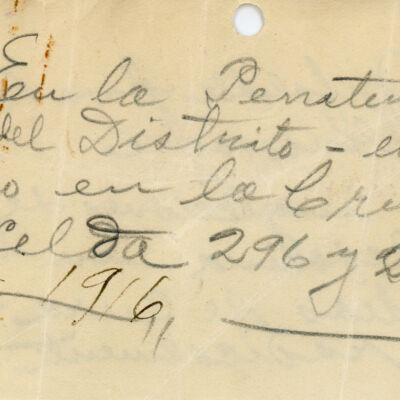 En la Peniten
del Distrito - e
o en la Cru
Celda 296 y 2
1916